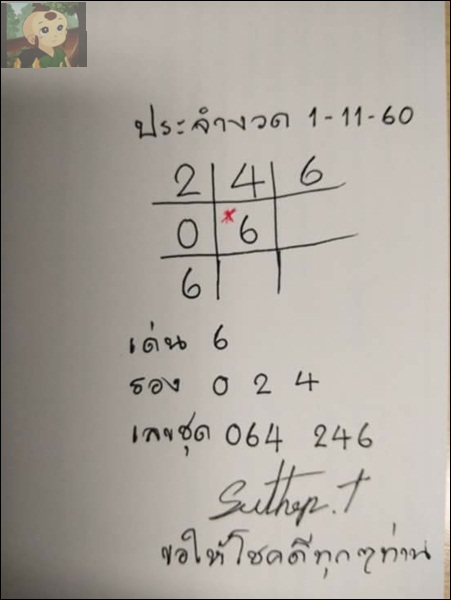 ประจำงวด 1-11-60
2 4 6
0 6
6
เด่น 6
รอง 0 2 4
เลขชุด 064 246
Suthep.t
ขอให้โชคดีทุกๆท่าน